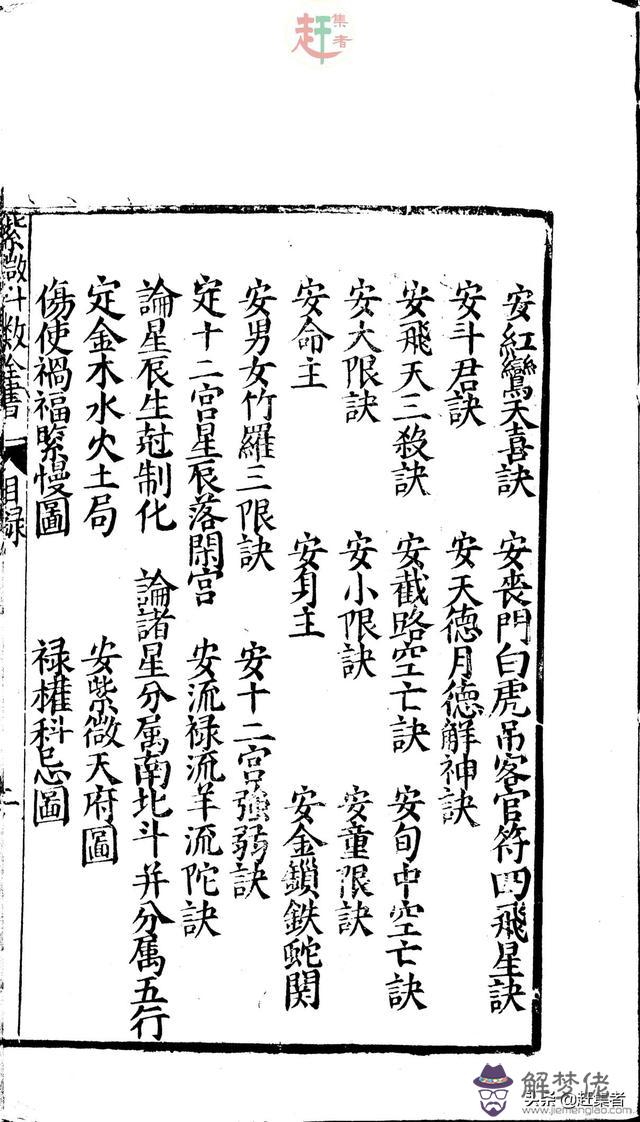 赶集者
安紅鸞天喜訣　安喪門白虎吊客官符四飛星訣
安斗君訣　安天德月德解神訣
安飛天三殺訣　安截路空亡訣　安旬中空亡訣
安大限訣　安小限訣　安童限訣
安命主　安身主　安金鎖鉄蛇関
安男女竹羅三限訣　安十二宮強弱訣
定十二宮星辰落閑宮　安流禄流羊流陀訣
論星辰生尅制化　論諸星分属南北斗并分属五行
定金木水火土局　安紫微天府圖
傷使禍福緊慢圖　禄權科忌圖
紫微斗数全書　目録　一
解梦佬
头条@赶集者
www.jiemenglao.com